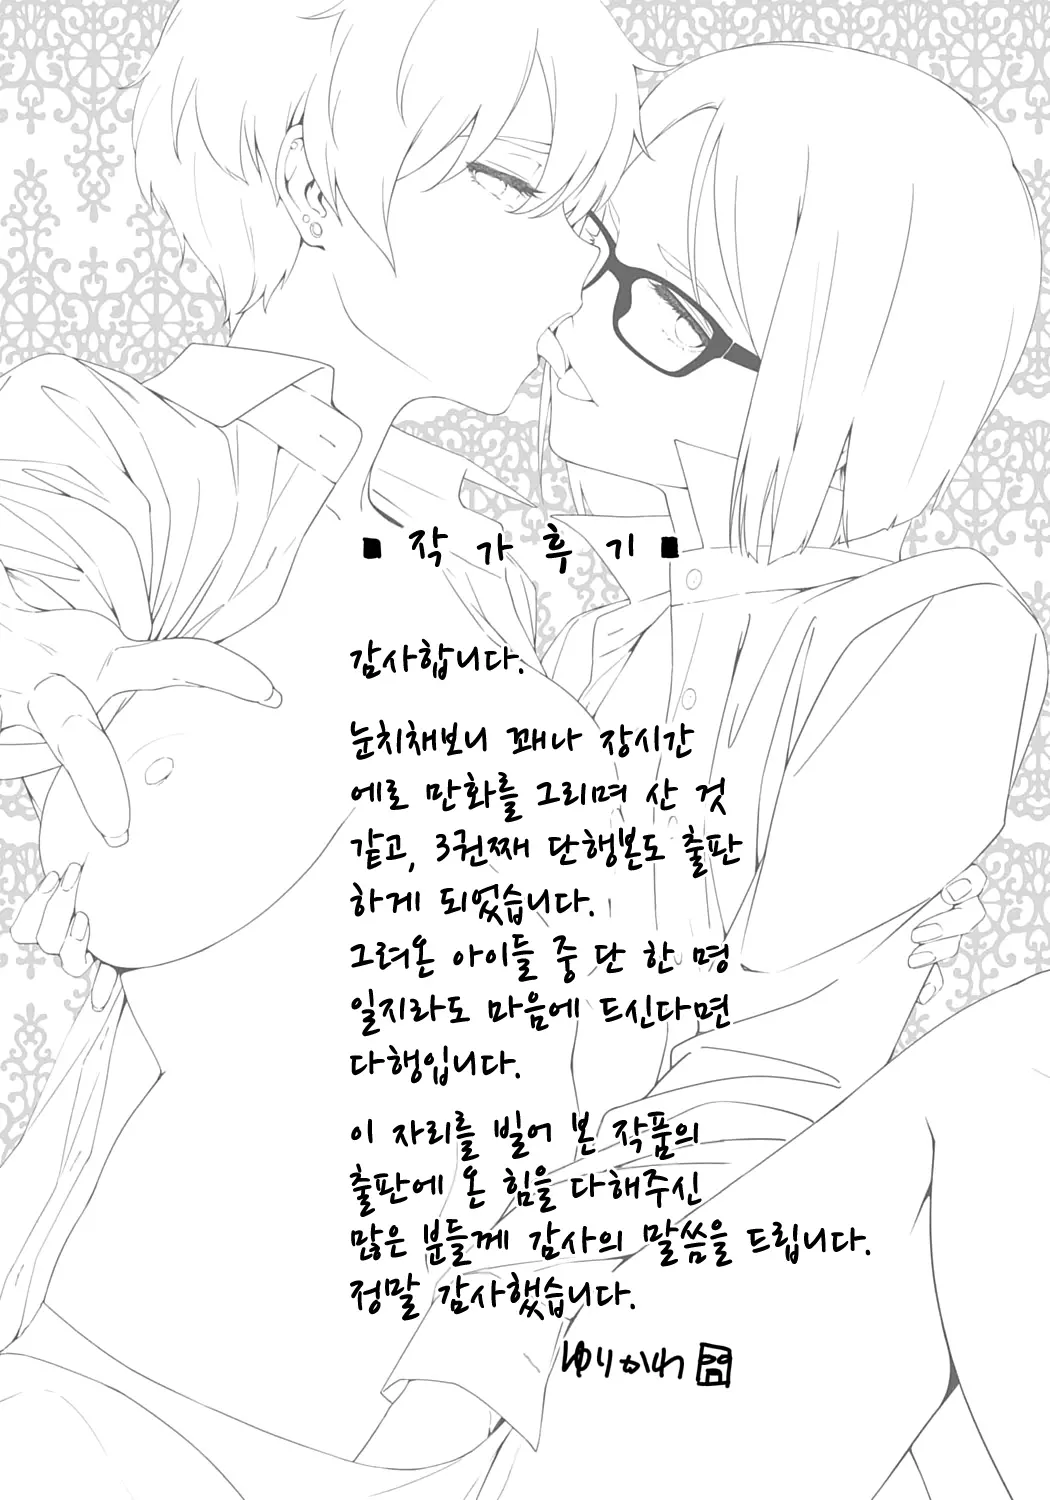 ■ 작 가 후 기 ■
감사합니다.
눈치채보니 꽤나 장시간
에로 만화를 그리며 산 것
같고, 3권째 단행본도 출판
하게 되었습니다.
그려온 아이들 중 단 한 명
일지라도 마음에 드신다면
다행입니다.
이 자리를 빌어 본 작품의
출판에 온 힘을 다해주신
많은 분들께 감사의 말씀을 드립니다.
정말 감사했습니다.
ゆりかわ